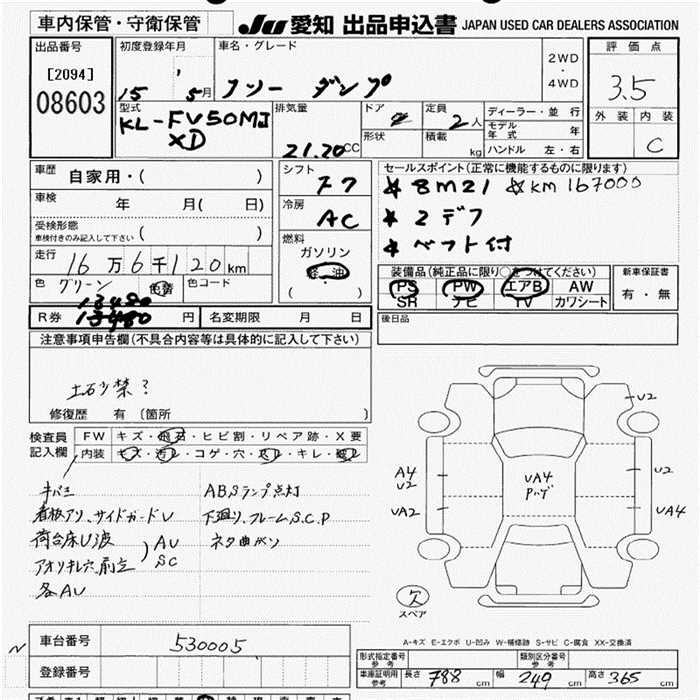 車内保管・守衛保管
JU 愛知 出品申込書 JAPAN USED CAR DEALERS ASSOCIATION
出品番号
[2094]
08603
初度登録年月
15 5月
車名・グレード
フソー ダンプ
2WD
・
4WD
評価点
3.5
外装 内装
C
型式
KL-FV50MJ
XD
排気量
21.20CC
ドア
形状
定員
2人
積載
kg
ディーラー・並行
モデル年式 年
ハンドル 左・右
車歴
自家用・( )
車検
年 月( 日)
受検形態
車検付きのみ記入して下さい ( )
走行
16万6千120km
色 グリーン 色替 色コード
13480
R券 13480 円 名変期限 月 日
シフト
F7
冷房
AC
燃料
ガソリン
軽油
( )
セールスポイント(正常に機能するものに限ります)
☆8M21 ☆KM 167000
★2デフ
★ベット付
装備品(純正品に限り○をつけてください)
PS PW エアB AW
SR ナビ TV カワシート
新車保証書
有・無
後日品
注意事項申告欄(不具合内容等は具体的に記入して下さい)
土石少禁?
修復歴 有 (箇所 )
検査員
記入欄
FW キズ・飛石・ヒビ割・リペア跡・X要
内装 キズ・汚レ・コゲ・穴・スレ・キレ・破レ
キバミ
看板アリ、サイドガードU
荷台床U波
アオリキレ穴、腐立
) AU
SC
各AU
ABSランプ点灯
下廻り、フレームS.C.P
ネタ曲がり
U2
A4
U2
UA2
UA4
Pハゲ
U2
UA4
欠
スペア
A-キズ E-エクボ U-凹み W-補修跡 S-サビ C-腐食 XX-交換済
車台番号 530005
登録番号
N
型式指定番号
参考
類別区分番号
参考
車庫証明用
参考
長さ 788 cm 幅 249 cm 高さ 365 cm